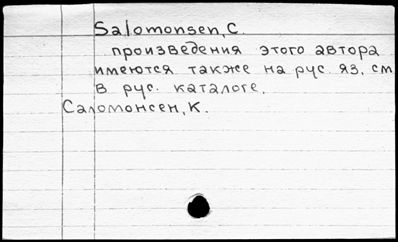 Salomonsen, C.
произведения этого автора
имеются также на рус. яз. см
в рус. каталоге.
Саломонсен, К.